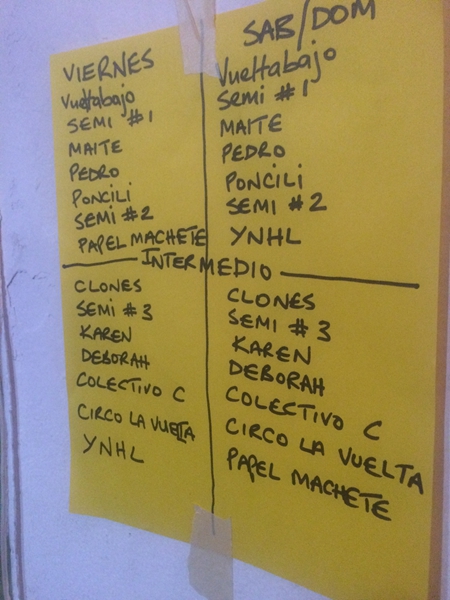 VIERNES
Vueltabajo
SEMI #1
MAITE
PEDRO
PONCILI
SEMI #2
PAPEL MACHETE
SAB/DOM
Vueltabajo
Semi #1
MAITE
PEDRO
PONCILI
SEMI #2
YNHL
INTERMEDIO
CLONES
SEMI #3
KAREN
DEBORAH
COLECTIVO C
CIRCO LA VUELTA
YNHL
CLONES
SEMI #3
KAREN
DEBORAH
COLECTIVO C
CIRCO LA VUELTA
PAPEL MACHETE